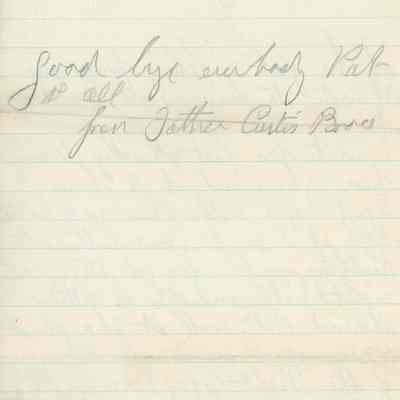 Good bye everbody Pat
to all
from Father Curtis Bros